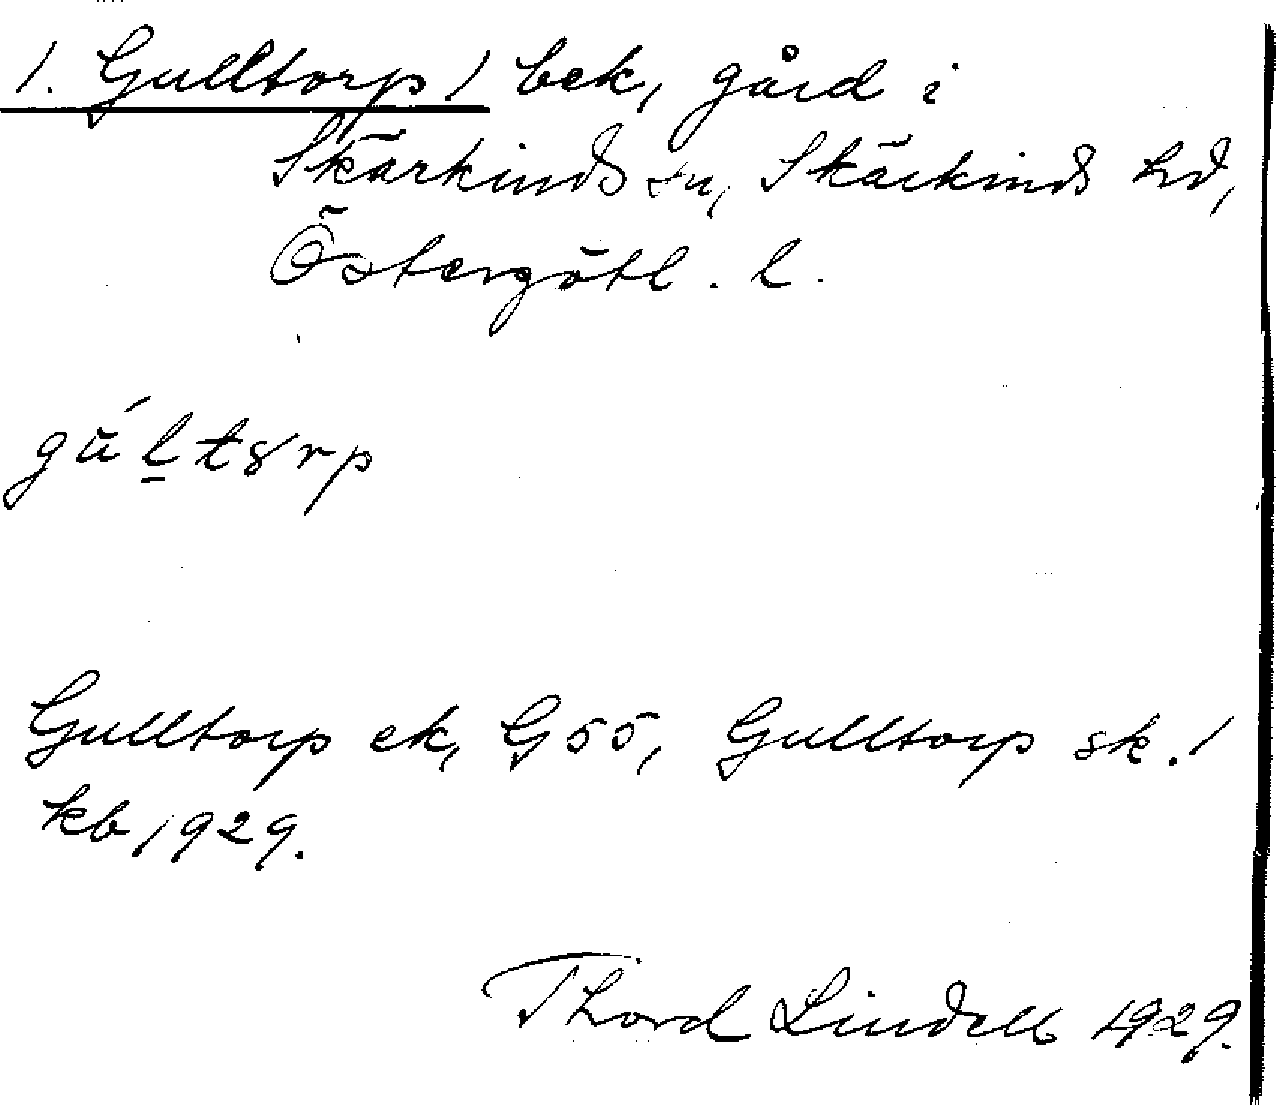 1. Gulltorp / bek, gård i
Skärkinds sn, Skärkinds hd,
Östergötl. l.
gúl̲tȣrp
Gulltorp ek, G 55, Gulltorp sk. /
kb 1929.
Thord Lindell 1929.